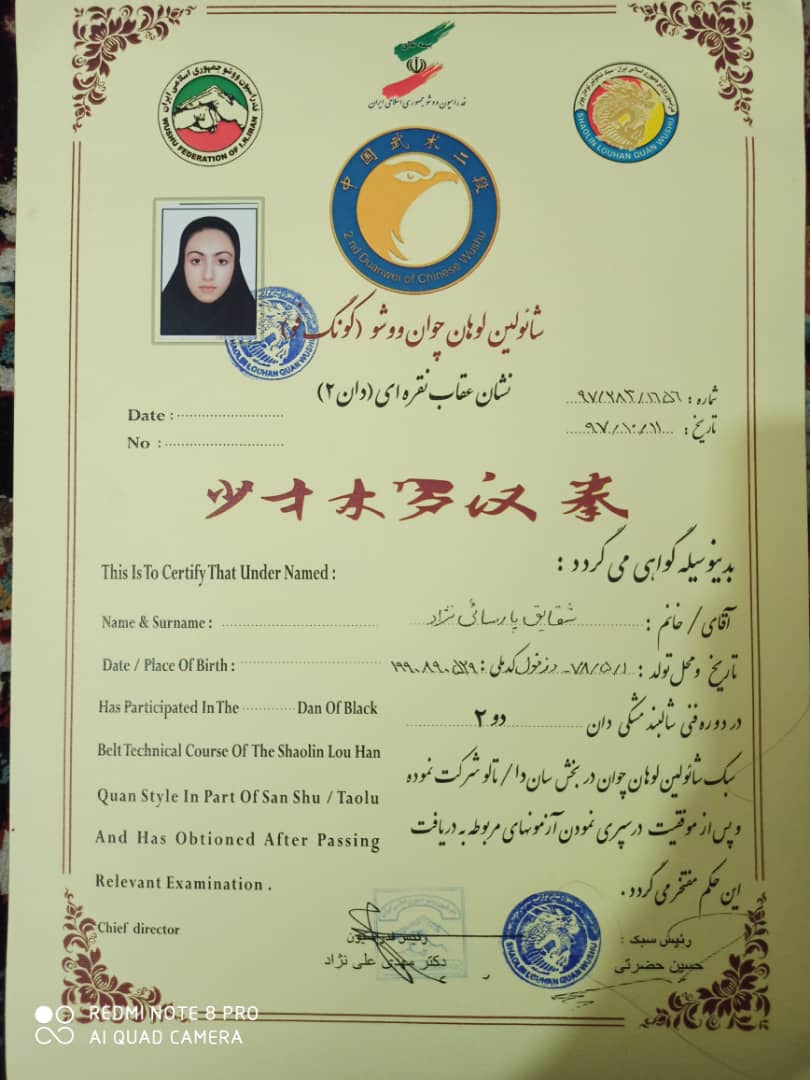 بسمه تعالی
فدراسیون ووشو جمهوری اسلامی ایران
فدراسیون ووشو جمهوری اسلامی ایران
WUSHU FEDERATION OF I.R.IRAN
SHAOLIN LOUHAN QUAN WUSHU
中国武术二段
2 nd Duanwei of Chinese Wushu
شائولین لوهان چوان ووشو (کونگ فو)
SHAOLIN LOUHAN QUAN WUSHU
نشان عقاب نقره ای (دان ۲)
شماره : ۹۷/۲۸۳/۱۶۵۶
Date :
تاریخ : ۹۷/۱۰/۱۱
No :
少林罗汉拳
بدینوسیله گواهی می گردد :
This Is To Certify That Under Named :
آقای / خانم : شقایق پارسائی نژاد
Name & Surname :
تاریخ و محل تولد : ۷۸/۵/۱ - دزفول کدملی :
Date / Place Of Birth :
در دوره فنی شالبند مشکی دان دو ۲
Has Participated In The Dan Of Black
Belt Technical Course Of The Shaolin Lou Han
سبک شائولین لوهان چوان در بخش ساندا / تالو شرکت نموده
Quan Style In Part Of San Shu / Taolu
و پس از موفقیت در سپری نمودن آزمونهای مربوطه به دریافت
And Has Obtioned After Passing
این حکم مفتخر می گردد .
Relevant Examination .
Chief director
رئیس فدراسیون
دکتر مهدی علی نژاد
رئیس سبک :
حسین حضرتی
SHAOLIN LOUHAN QUAN WUSHU
REDMI NOTE 8 PRO
AI QUAD CAMERA